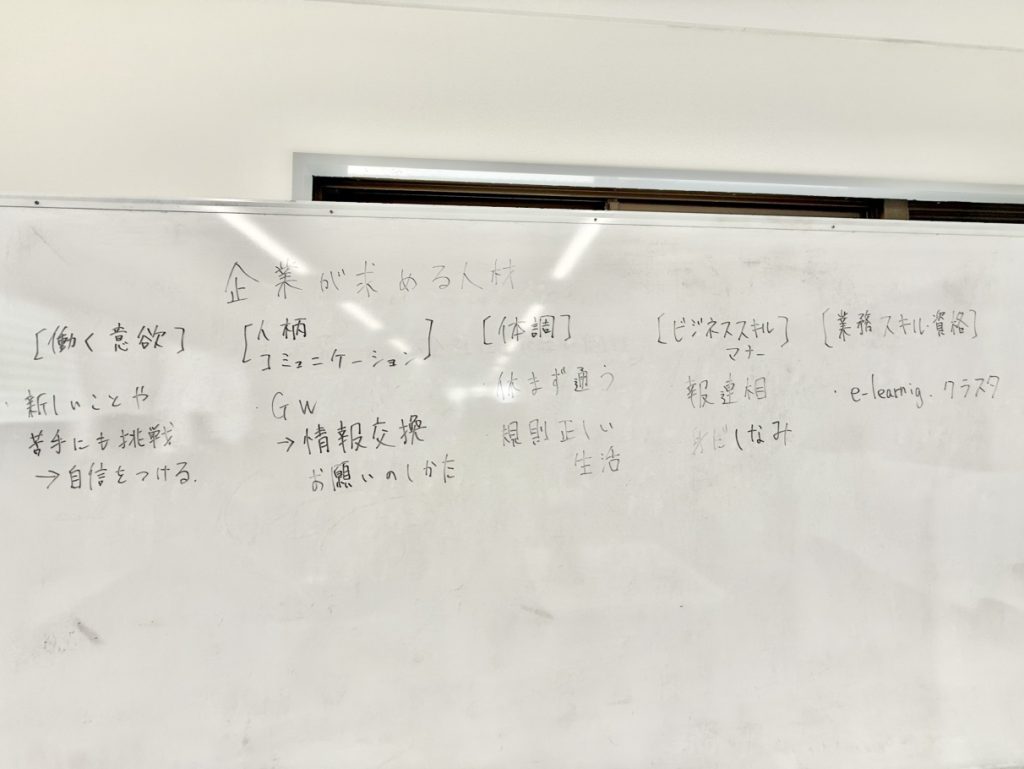 企業が求める人材
[働く意欲]
・新しいことや
苦手にも挑戦
→自信をつける.
[人柄
コミュニケーション]
・GW
→情報交換
お願いのしかた
[体調]
・休まず通う
規則正しい
生活
[ビジネススキル]
マナー
報連相
身だしなみ
[業務スキル・資格]
・e-learnig. クラスタ